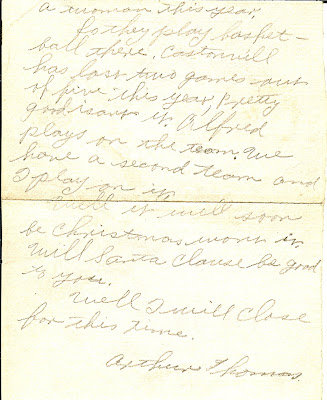 a woman this year.
Do they play basket-
ball there. Castonvill
has lost two games out
of five this year, Pretty
good isant it Alfred
plays on the team. We
have a second team and
I play on it
Well it will soon
be Christmas wont it.
Will Santa Clause be good
to you.
Well I will close
for this time.
Arthur Thomas.